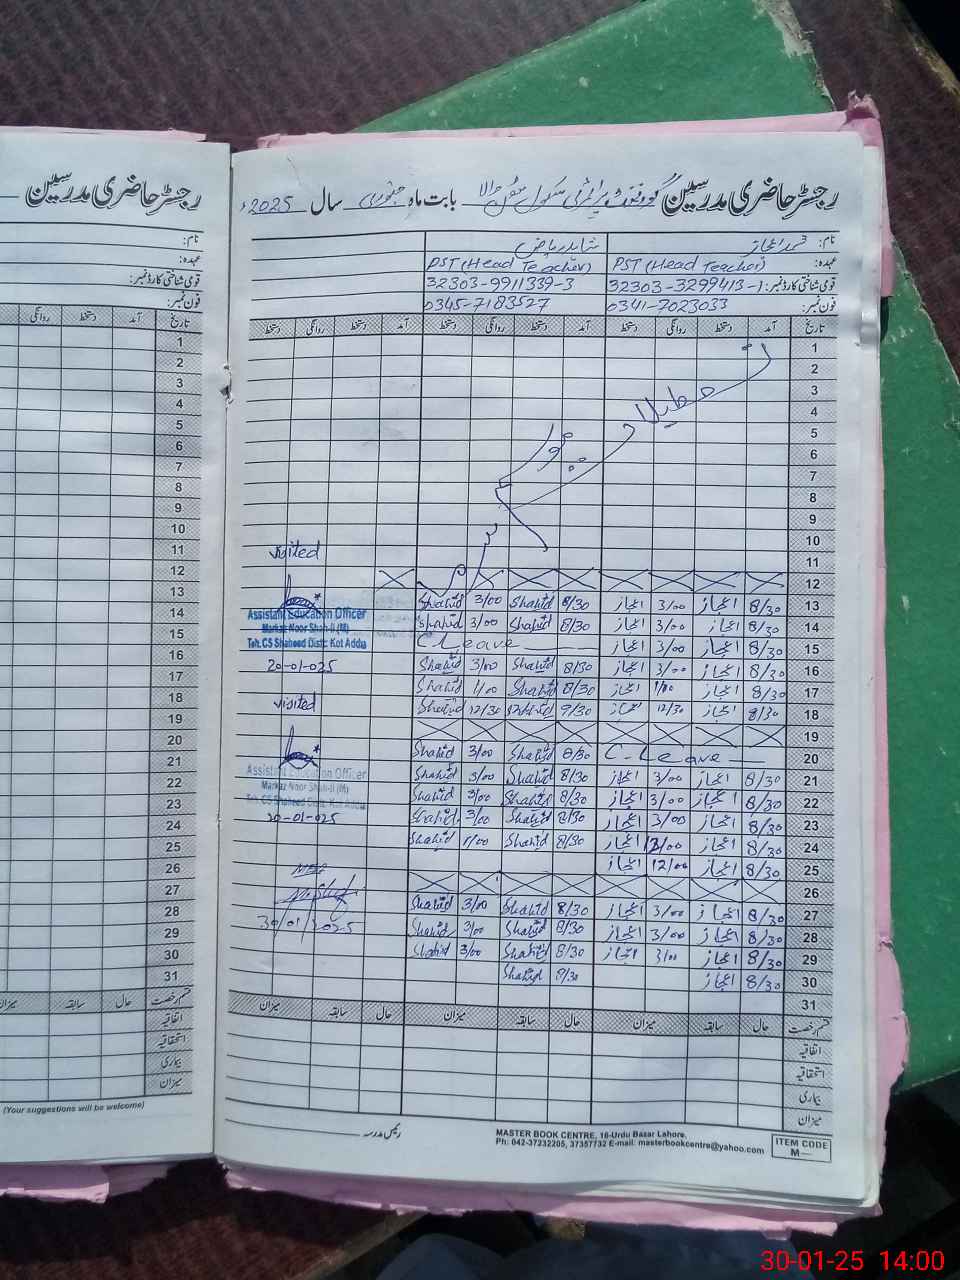 رجسٹر حاضری مدرسین گورنمنٹ پرائمری سکول والا بابت ماہ جنوری سال 2025ء
نام: محمد اعجاز شاہد ریاض
عہدہ: PST (Head Teacher) PST (Head Teacher)
قومی شناختی کارڈ نمبر: 32303-3299413-1 32303-9911339-3
فون نمبر: 0341-7023033 0345-7183527
تاریخ آمد دستخط روانگی دستخط آمد دستخط روانگی دستخط آمد دستخط روانگی دستخط
1
2
3
4
5
6
7
8
9
10
11
12
تعطیلات موسم
13 8/30 اعجاز 3/00 اعجاز 8/30 Shahid 3/00 Shahid
14 8/30 اعجاز 3/00 اعجاز 8/30 Shahid 3/00 Shahid
15 8/30 اعجاز 3/00 اعجاز C Leave
16 8/30 اعجاز 3/00 اعجاز 8/30 Shahid 3/00 Shahid
17 8/30 اعجاز 1/00 اعجاز 8/30 Shahid 1/00 Shahid
18 8/30 اعجاز 12/30 اعجاز 9/30 Shahid 12/30 Shahid
19
20 C-Leave 8/30 Shahid 3/00 Shahid
21 8/30 اعجاز 3/00 اعجاز 8/30 Shahid 3/00 Shahid
22 8/30 اعجاز 3/00 اعجاز 8/30 Shahid 3/00 Shahid
23 8/30 اعجاز 3/00 اعجاز 8/30 Shahid 3/00 Shahid
24 8/30 اعجاز اعجاز 8/30 Shahid 1/00 Shahid
25 8/30 اعجاز 12/00 اعجاز
26
27 8/30 اعجاز 3/00 اعجاز 8/30 Shahid 3/00 Shahid
28 8/30 اعجاز 3/00 اعجاز 8/30 Shahid 3/00 Shahid
29 8/30 اعجاز 3/00 اعجاز 8/30 Shahid 3/00 Shahid
30 8/30 اعجاز 8/30 Shahid
31
visited
Assistant Education Officer
Markaz Noor Shah-II (M)
Teh. CS Shaheed Distt: Kot Addu
20-01-025
visited
Assistant Education Officer
Markaz Noor Shah-II (M)
Teh. CS Shaheed Distt: Kot Addu
20-01-025
30/01/2025
قسم رخصت حال سابقہ میزان حال سابقہ میزان حال سابقہ میزان
اتفاقیہ
استحقاقیہ
بیماری
میزان
رئیس مدرسہ
MASTER BOOK CENTRE, 16-Urdu Bazar Lahore.
Ph: 042-37232205, 37357732 E-mail: masterbookcentre@yahoo.com
ITEM CODE
M—
رجسٹر حاضری مدرسین
نام:
عہدہ:
قومی شناختی کارڈ نمبر:
فون نمبر:
تاریخ آمد دستخط روانگی دستخط
1
2
3
4
5
6
7
8
9
10
11
12
13
14
15
16
17
18
19
20
21
22
23
24
25
26
27
28
29
30
31
قسم رخصت حال سابقہ میزان
اتفاقیہ
استحقاقیہ
بیماری
میزان
(Your suggestions will be welcome)
30-01-25 14:00